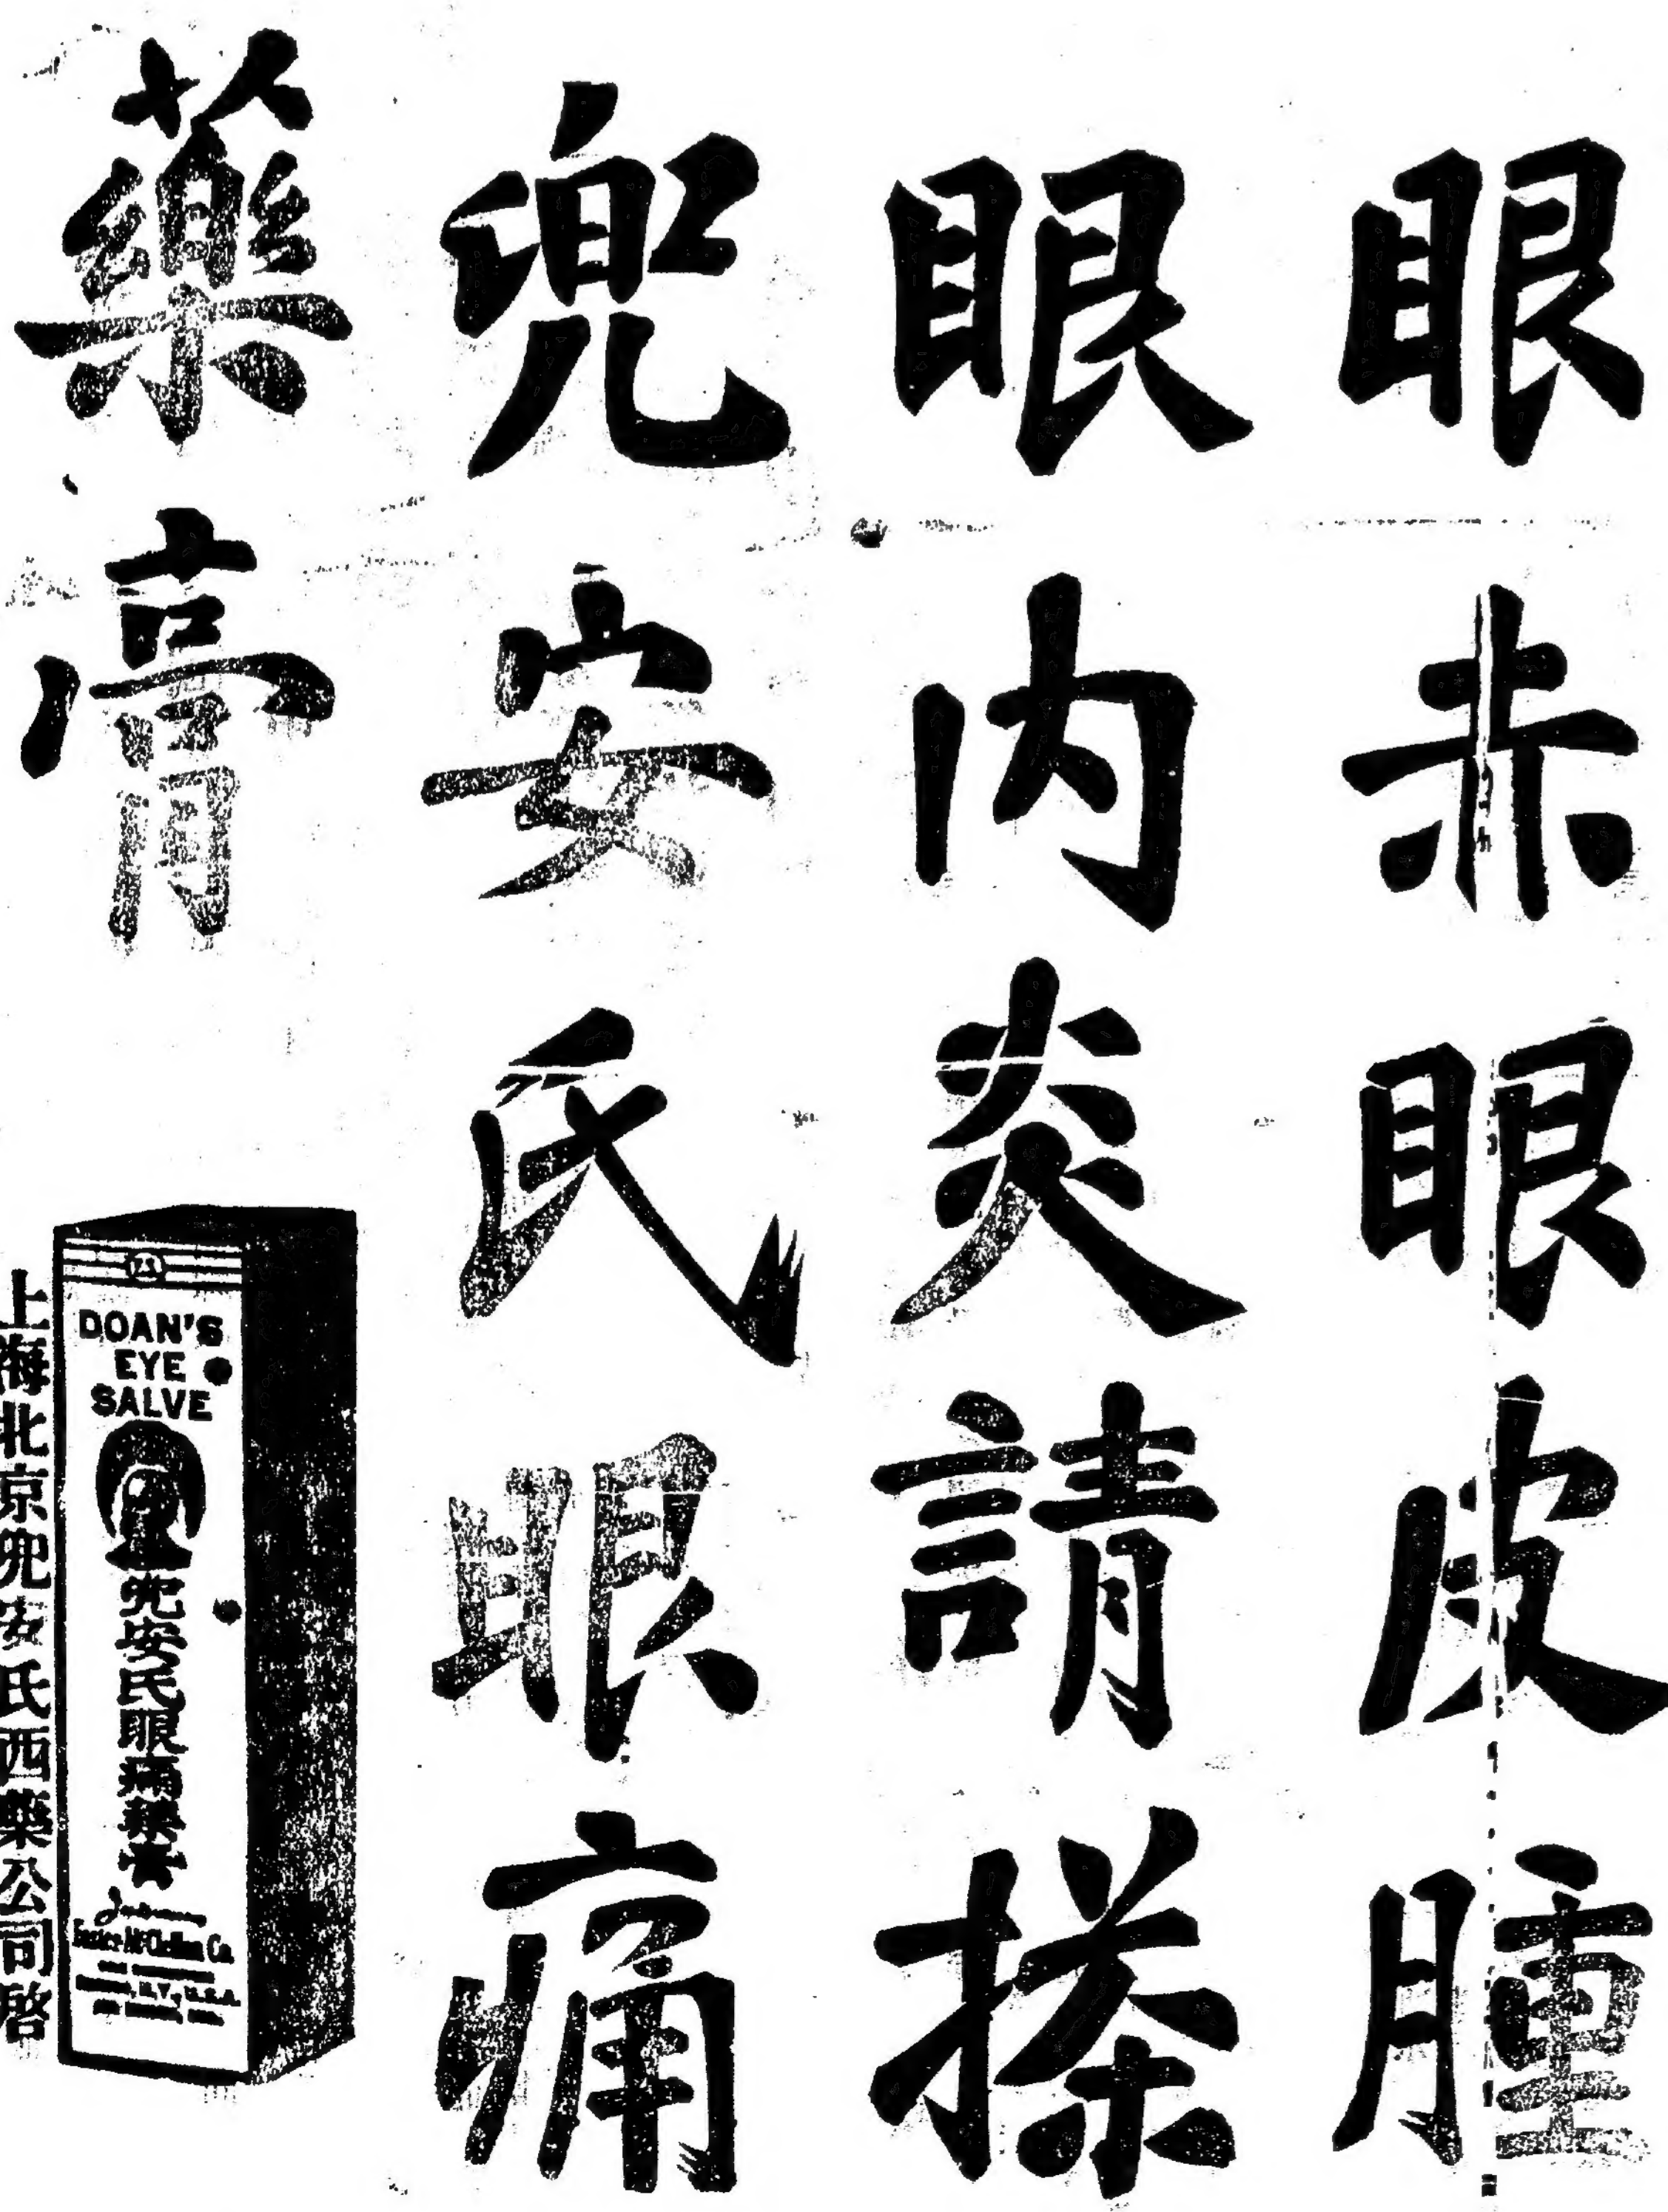 眼赤眼皮腫
眼内炎請搽
兜安氏眼痛
藥膏
DOAN'S
EYE
SALVE
兜安氏眼痛藥膏
Foster-McClellan Co.
N.Y., U.S.A.
上海北京兜安氏西藥公司啓